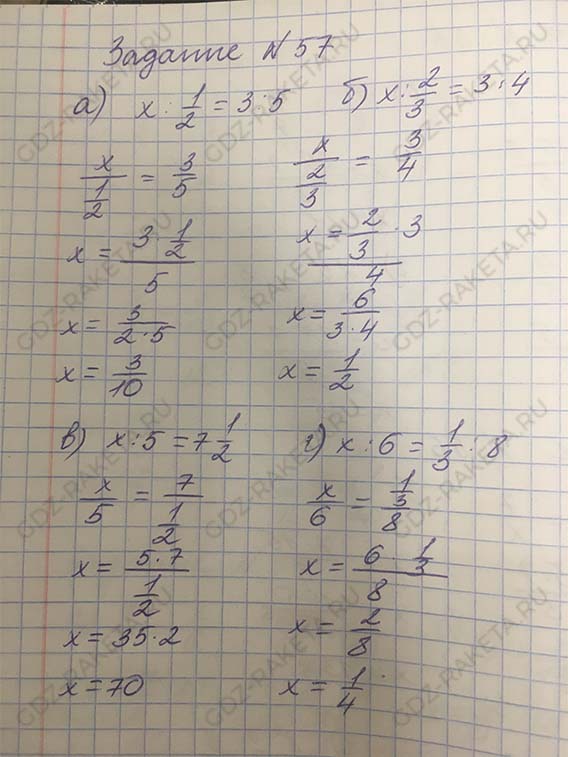 Задание №57
а) x : 1/2 = 3 : 5
x / (1/2) = 3/5
x = (3 · 1/2) / 5
x = 3 / (2·5)
x = 3/10
б) x : 2/3 = 3 : 4
x / (2/3) = 3/4
x = (2/3 · 3) / 4
x = 6 / (3·4)
x = 1/2
в) x : 5 = 7 1/2
x/5 = 7 / (1/2)
x = (5·7) / (1/2)
x = 35·2
x = 70
г) x : 6 = 1/3 : 8
x/6 = (1/3) / 8
x = (6 · 1/3) / 8
x = 2/8
x = 1/4
GDZ-RAKETA.RU